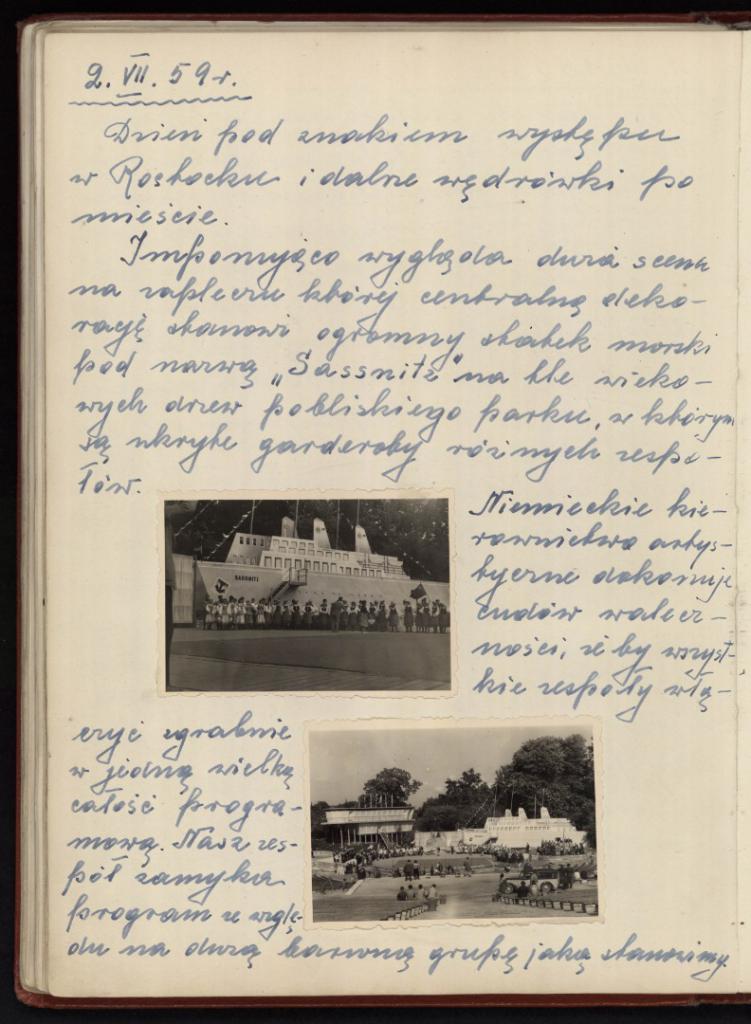 2. VII. 59 r.
Dzień pod znakiem występu
w Rostocku i dalsze wędrówki po
mieście.
Imponująco wygląda duża scena
na zapleczu której centralną deko-
rację stanowi ogromny statek morski
pod nazwą „Sassnitz" na tle wieko-
wych drzew pobliskiego parku, w którym
są ukryte garderoby różnych zespo-
łów.
Niemieckie kie-
rownictwo artys-
tyczne dokonuje
cudów walecz-
ności, że by wszyst-
kie zespoły włą-
czyć zgrabnie
w jedną wielką
całość progra-
mową. Nasz zes-
pół zamyka
program ze wzglę-
du na dużą barwną grupę jaką stanowimy.
SASSNITZ